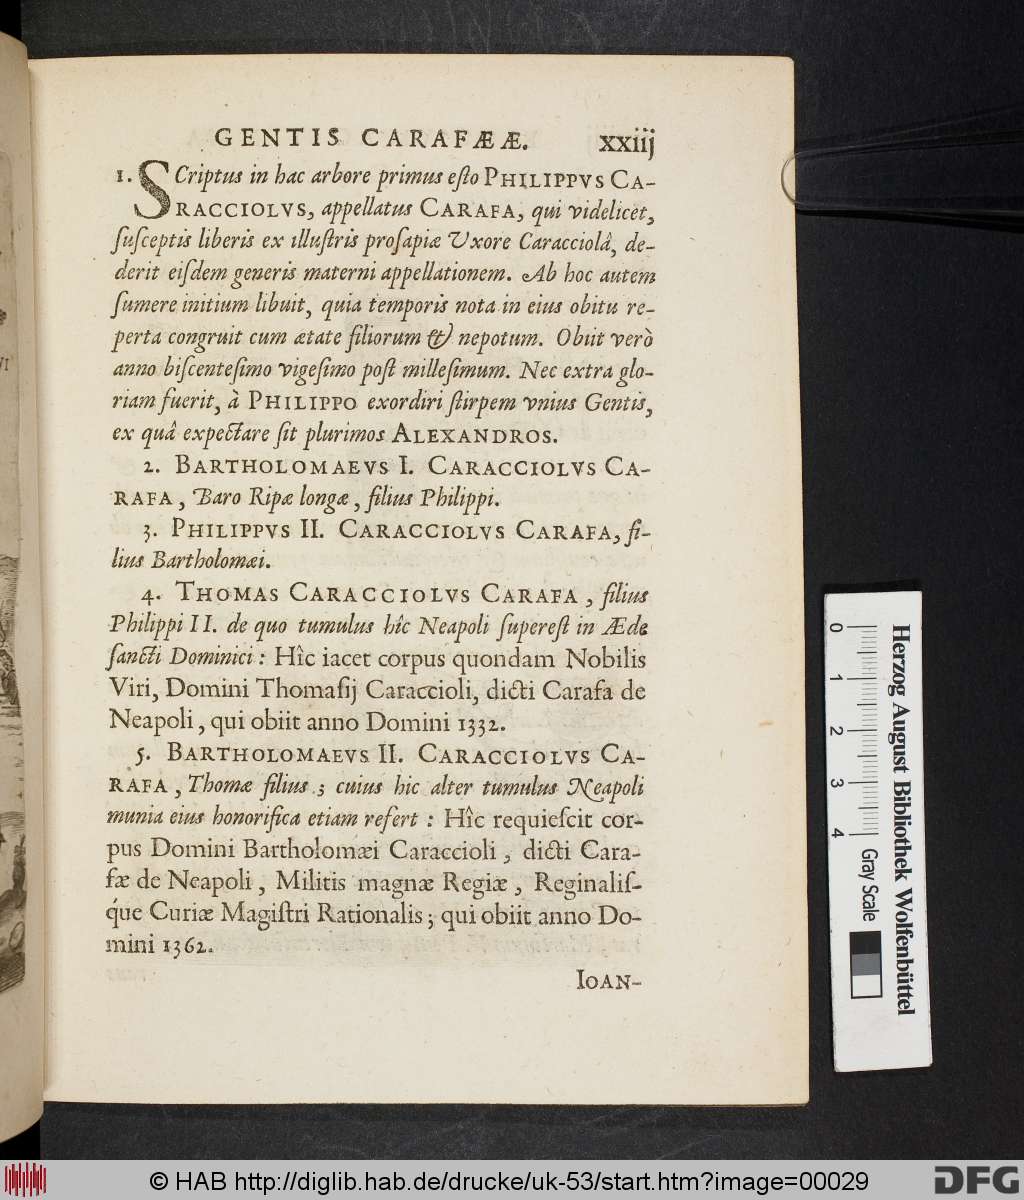 GENTIS CARAFÆÆ. xxiij
1. SCriptus in hac arbore primus eſto PHILIPPVS CA-
RACCIOLVS, appellatus CARAFA, qui videlicet,
ſuſceptis liberis ex illuſtris proſapiæ Vxore Caracciolâ, de-
derit eiſdem generis materni appellationem. Ab hoc autem
ſumere initium libuit, quia temporis nota in eius obitu re-
perta congruit cum ætate filiorum & nepotum. Obiit verò
anno biſcenteſimo vigeſimo poſt milleſimum. Nec extra glo-
riam fuerit, à PHILIPPO exordiri ſtirpem vnius Gentis,
ex quâ expectare ſit plurimos ALEXANDROS.
2. BARTHOLOMAEVS I. CARACCIOLVS CA-
RAFA, Baro Ripæ longæ, filius Philippi.
3. PHILIPPVS II. CARACCIOLVS CARAFA, fi-
lius Bartholomæi.
4. THOMAS CARACCIOLVS CARAFA, filius
Philippi II. de quo tumulus hîc Neapoli ſupereſt in Æde
ſancti Dominici: Hîc iacet corpus quondam Nobilis
Viri, Domini Thomaſij Caraccioli, dicti Carafa de
Neapoli, qui obiit anno Domini 1332.
5. BARTHOLOMAEVS II. CARACCIOLVS CA-
RAFA, Thomæ filius; cuius hic alter tumulus Neapoli
munia eius honorifica etiam refert: Hîc requieſcit cor-
pus Domini Bartholomæi Caraccioli, dicti Cara-
fæ de Neapoli, Militis magnæ Regiæ, Reginaliſ-
q́ue Curiæ Magiſtri Rationalis; qui obiit anno Do-
mini 1362.
IOAN-
0 1 2 3 4
Gray Scale
Herzog August Bibliothek Wolfenbüttel
© HAB http://diglib.hab.de/drucke/uk-53/start.htm?image=00029
DFG